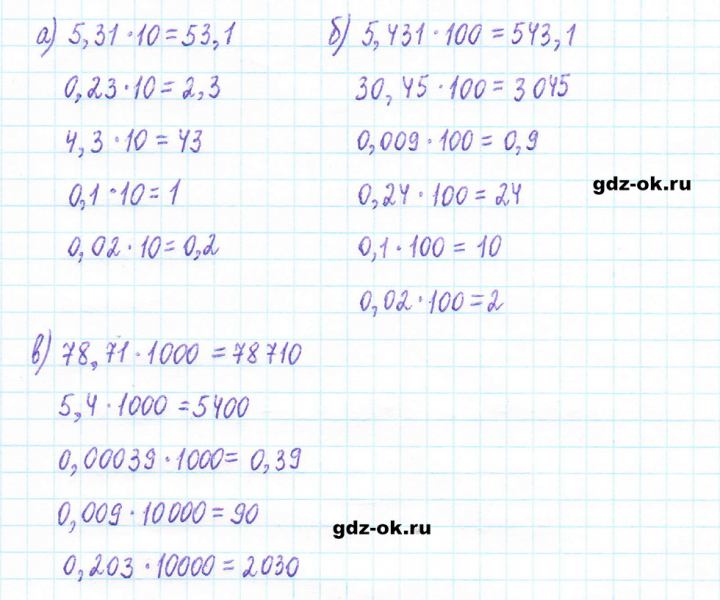 а) 5,31 · 10 = 53,1
0,23 · 10 = 2,3
4,3 · 10 = 43
0,1 · 10 = 1
0,02 · 10 = 0,2
б) 5,431 · 100 = 543,1
30,45 · 100 = 3045
0,009 · 100 = 0,9
0,24 · 100 = 24
0,1 · 100 = 10
0,02 · 100 = 2
gdz-ok.ru
в) 78,71 · 1000 = 78710
5,4 · 1000 = 5400
0,00039 · 1000 = 0,39
0,009 · 10000 = 90
0,203 · 10000 = 2030
gdz-ok.ru